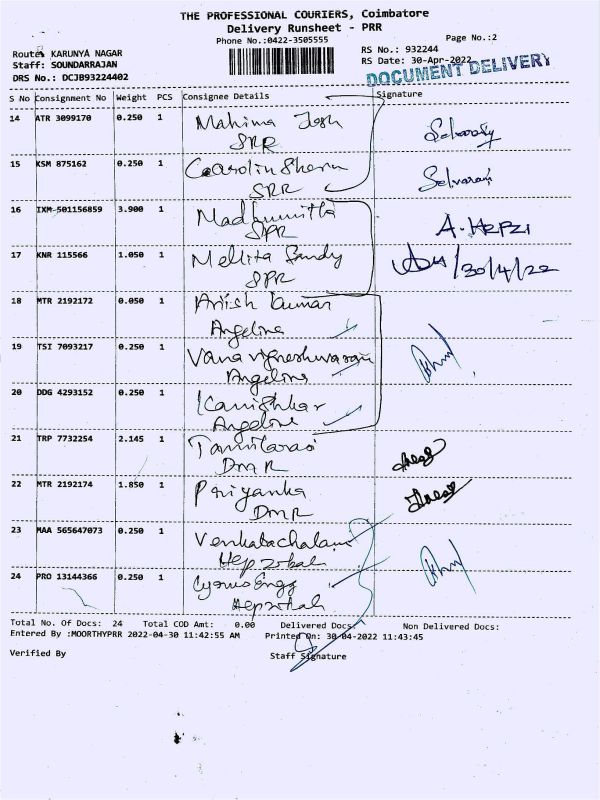 THE PROFESSIONAL COURIERS, Coimbatore
Delivery Runsheet - PRR
Phone No.:0422-3505555
Page No.:2
Route: KARUNYA NAGAR
RS No.: 932244
Staff: SOUNDARRAJAN
RS Date: 30-Apr-2022
DRS No.: DCJB93224402
DOCUMENT DELIVERY
S No Consignment No Weight PCS Consignee Details Signature
14 ATR 3099170 0.250 1 Mahima Josh
SRR
15 KSM 875162 0.250 1 Carolin Sharm
SRR
Selvaraj
16 IXM-501156859 3.900 1 Madhumitha
SPR
A. HEPZI
17 KNR 115566 1.050 1 Mellita Sandy
SPR
30/4/22
18 MTR 2192172 0.050 1 Ariish Kumar
Angeline
19 TSI 7093217 0.250 1 Vanavigneshwaran
Angeline
20 DDG 4293152 0.250 1 Kanishkar
Angeline
21 TRP 7732254 2.145 1 Tamilarasi
DMR
22 MTR 2192174 1.850 1 Priyanka
DMR
23 MAA 565647073 0.250 1 Venkatachalam
Hepzibah
24 PRO 13144366 0.250 1 Cyrus Engg
Hepzibah
Total No. Of Docs: 24 Total COD Amt: 0.00 Delivered Docs: Non Delivered Docs:
Entered By :MOORTHYPRR 2022-04-30 11:42:55 AM Printed On: 30-04-2022 11:43:45
Verified By
Staff Signature